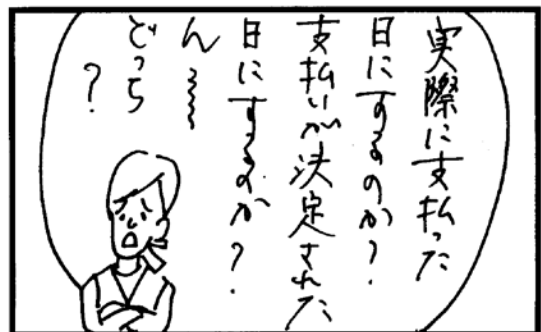 実際に支払った
日にするのか?
支払いが決定された
日にするのか?
ん〜
どっち
?